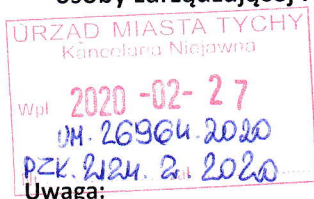 osoby zarządzającej i
URZĄD MIASTA TYCHY
Kancelaria Niejawna
Wpł 2020 -02- 27
UM. 26964.2020
PZK. 2124. 2. 2020
Uwaga: